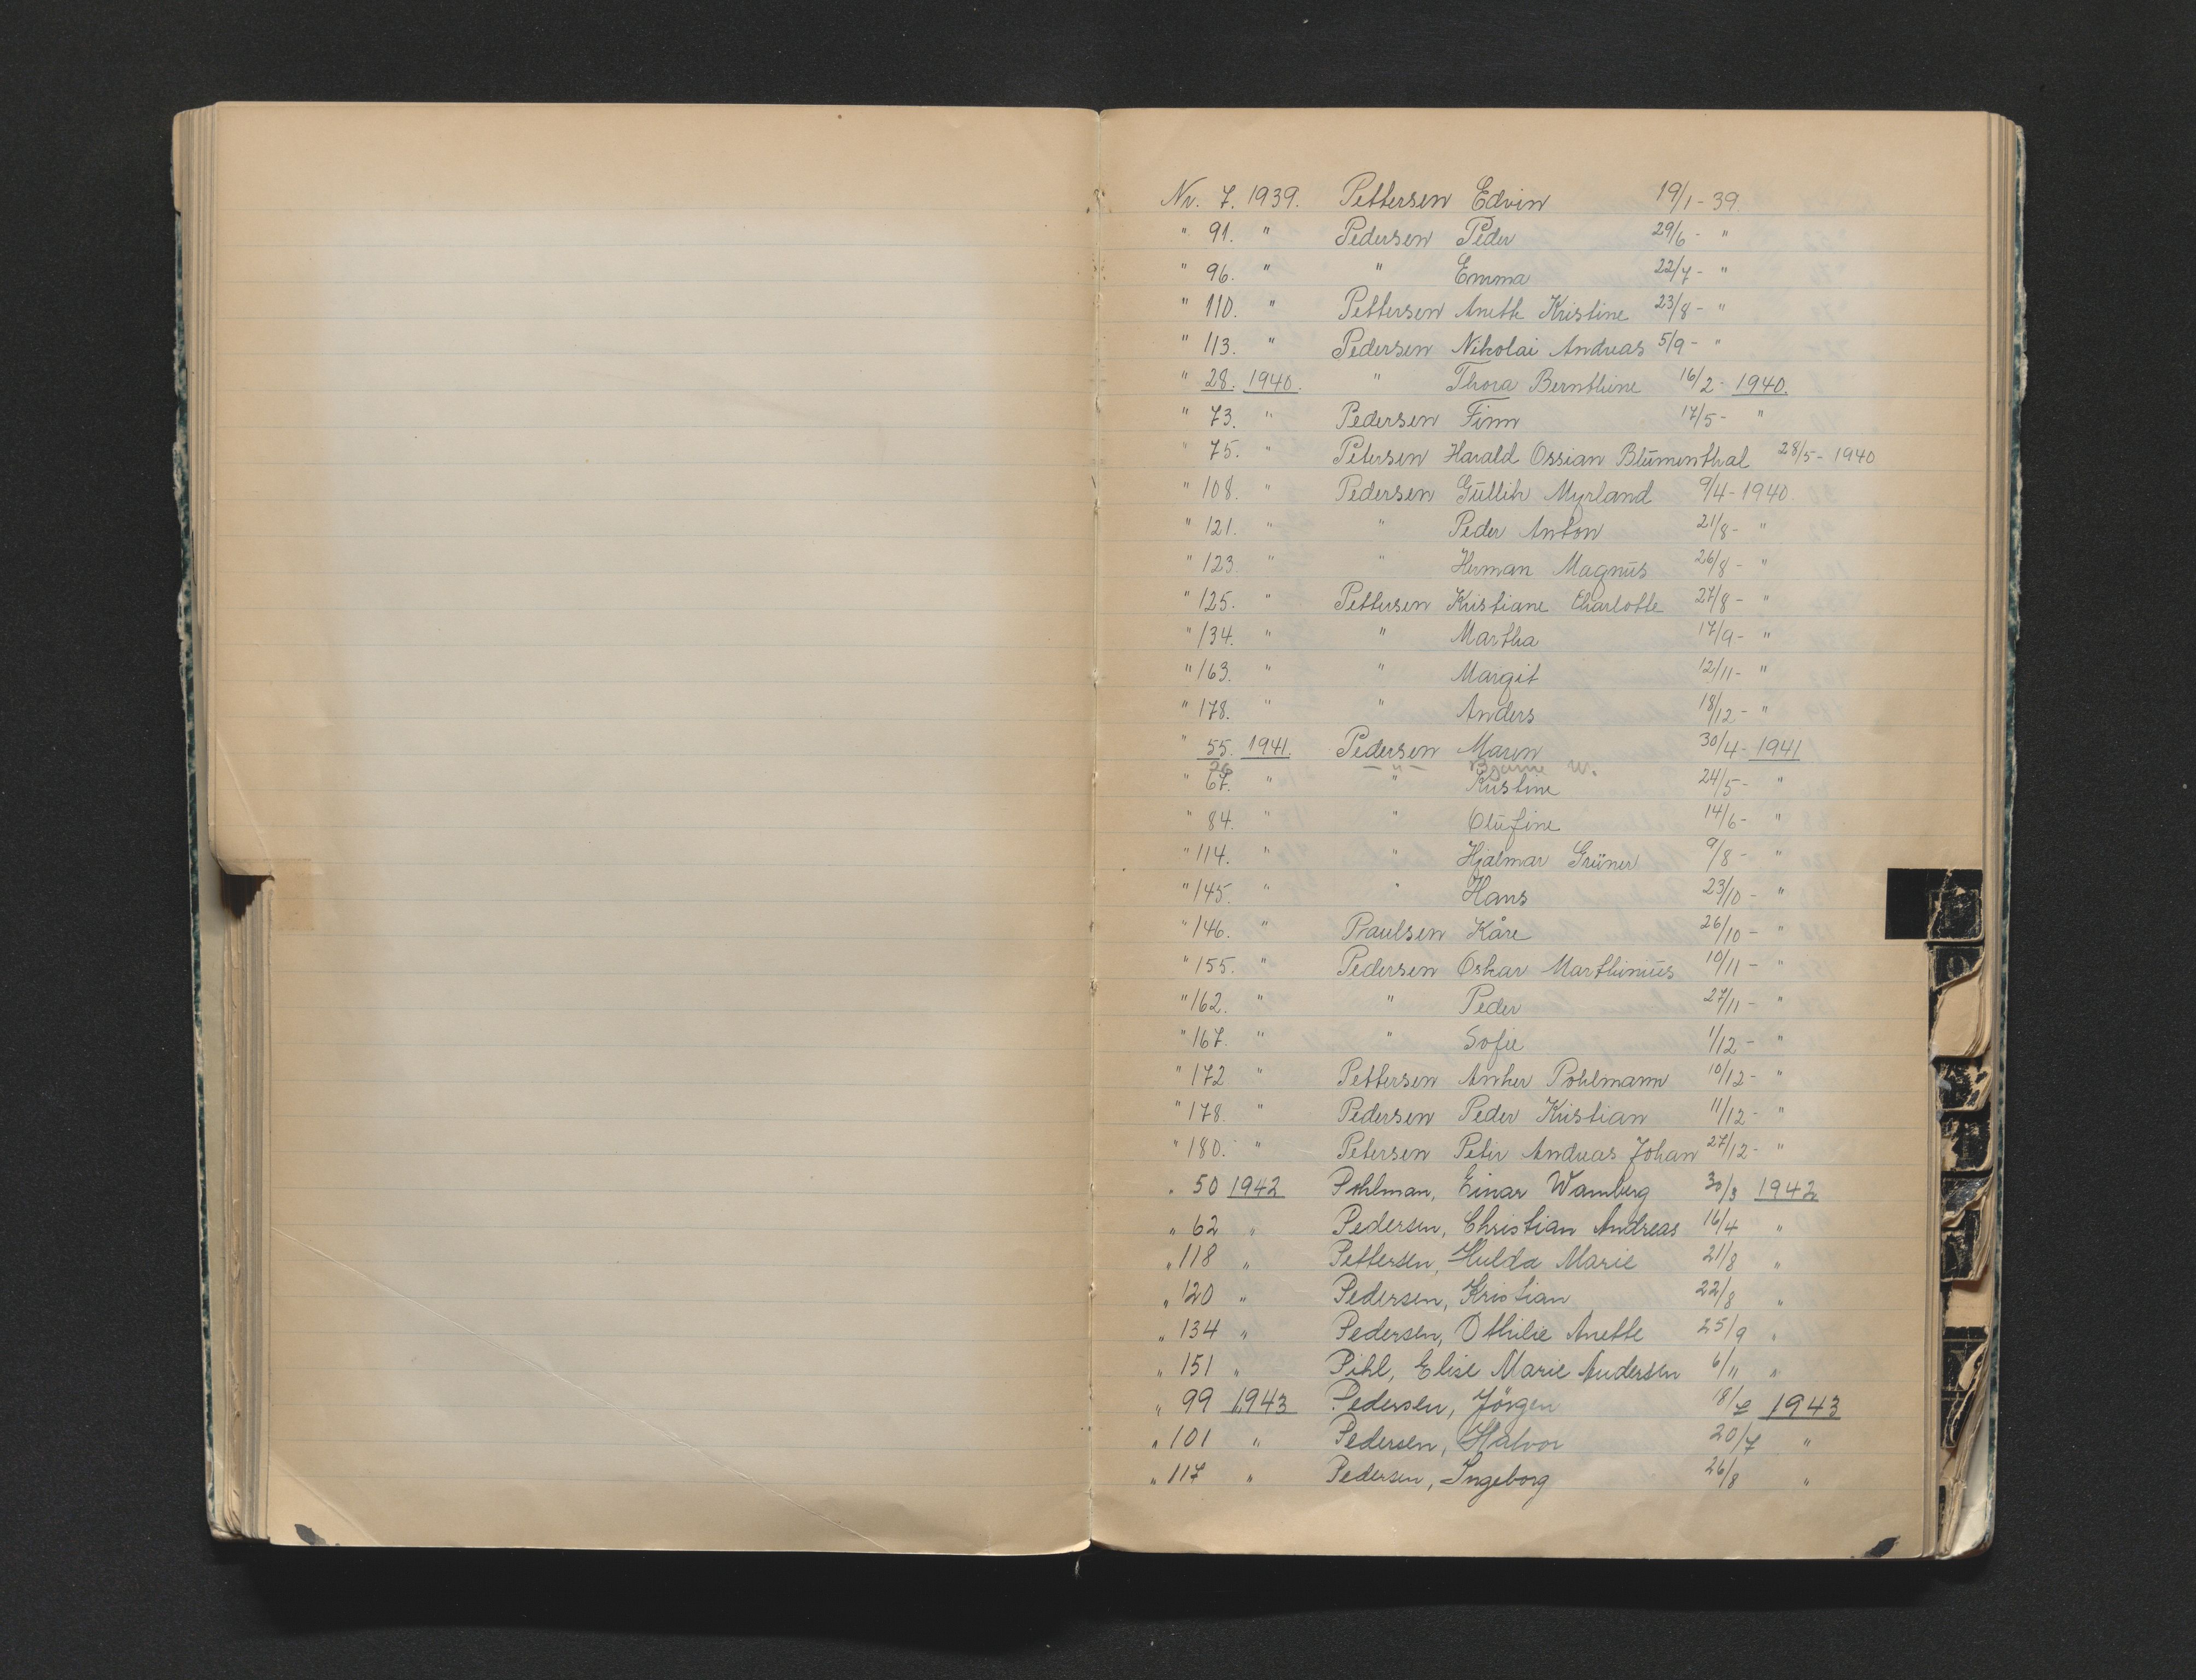 Nr. 7. 1939. Pettersen Edvin 19/1 - 39.
" 91. " Pedersen Peder 29/6 - "
" 96. " " Emma 22/7 - "
" 110. " Pettersen Aneth Kristine 23/8 - "
" 113. " Pedersen Nikolai Andreas 5/9 - "
" 28. 1940. " Thora Bernthine 16/2 - 1940.
" 73. " Pedersen Finn 17/5 - "
" 75. " Petersen Harald Ossian Blumenthal 28/5 - 1940
" 108. " Pedersen Gullik Myrland 9/4 - 1940.
" 121. " " Peder Anton 21/8 - "
" 123 " " Herman Magnus 26/8 - "
" 125. " Pettersen Kristiane Charlotte 27/8 - "
" 134. " " Martha 17/9 - "
" 163. " " Margit 12/11 - "
" 178. " " Anders 18/12 - "
" 55. 1941. Pedersen Maren 30/4 - 1941
26 - " - Bjarne W.
" 67. " " Kristine 24/5 - "
" 84. " " Olufine 14/6 - "
" 114. " " Hjalmar Grüner 9/8 - "
" 145. " " Hans 23/10 - "
" 146. " Paulsen Kåre 26/10 - "
" 155. " Pedersen Oskar Marthinius 10/11 - "
" 162. " " Peder 27/11 - "
" 167. " " Sofie 1/12 - "
" 172 " Pettersen Anker Pohlmann 10/12 - "
" 178. " Pedersen Peder Kristian 11/12 - "
" 180. " Petersen Peter Andreas Johan 27/12 - "
" 50 1942 Pohlman, Einar Wamberg 30/3 1942
" 62 " Pedersen, Christian Andreas 16/4 "
" 118 " Pettersen, Hulda Marie 21/8 "
" 120 " Pedersen, Kristian 22/8 "
" 134 " Pedersen, Othilie Anette 25/9 "
" 151 " Pihl, Elise Marie Andersen 6/11 "
" 99 1943 Pedersen, Jörgen 1943
" 101 " Pedersen, Halvor 20/7 "
" 117 " Pedersen, Ingeborg 26/8 "